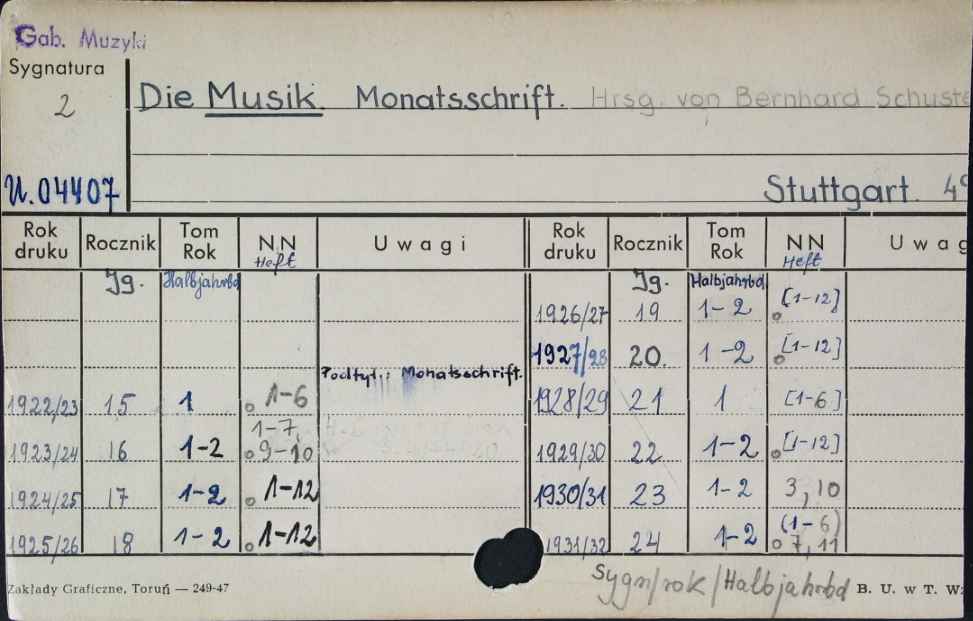 Gab. Muzyki
Sygnatura
2
Die Musik. Monatsschrift. Hrsg. von Bernhard Schuste
U.04407
Stuttgart. 49
Rok druku Rocznik Tom Rok NN Heft Uwagi Rok druku Rocznik Tom Rok NN Heft Uwag
Jg. Halbjahrbd Jg. Halbjahrbd.
1926/27 19 1-2 [1-12]
1927/28 20. 1-2 [1-12]
Podtyt.: Monatsschrift.
1922/23 15 1 1-6 1928/29 21 1 [1-6]
1923/24 16 1-2 1-7, 9-10 1929/30 22 1-2 [1-12]
1924/25 17 1-2 1-12 1930/31 23 1-2 3, 10
1925/26 18 1-2 1-12 1931/32 24 1-2 (1-6) 7, 11
Sygn/rok/Halbjahrbd
Zakłady Graficzne, Toruń — 249-47 B. U. w T. W